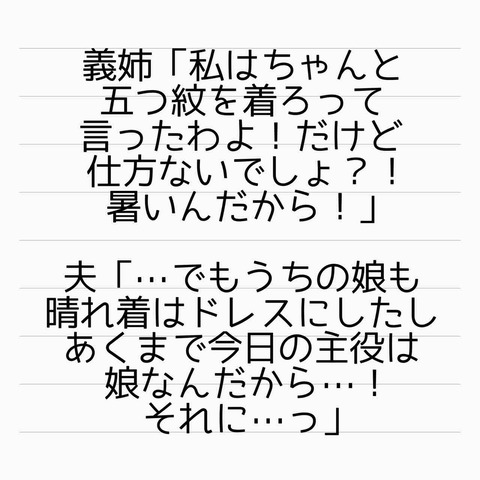 義姉「私はちゃんと
五つ紋を着ろって
言ったわよ！だけど
仕方ないでしょ？！
暑いんだから！」
夫「…でもうちの娘も
晴れ着はドレスにしたし
あくまで今日の主役は
娘なんだから…！
それに…っ」